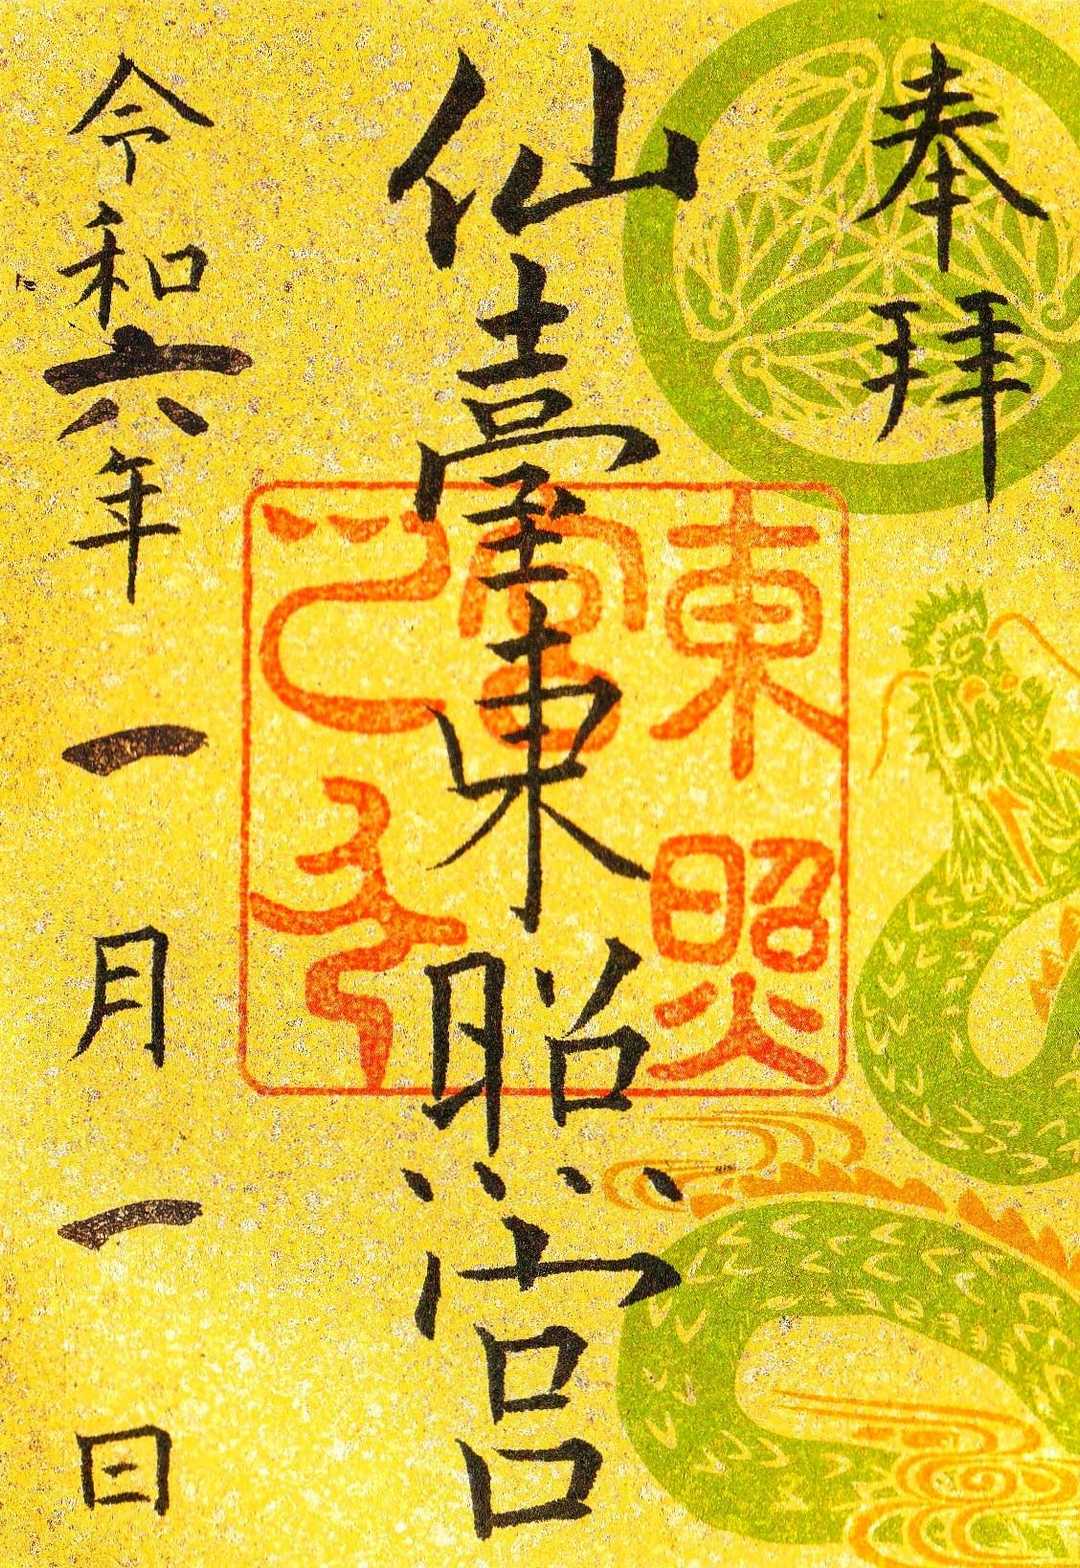 奉拝
仙臺東照宮
東照宮
令和六年一月一日